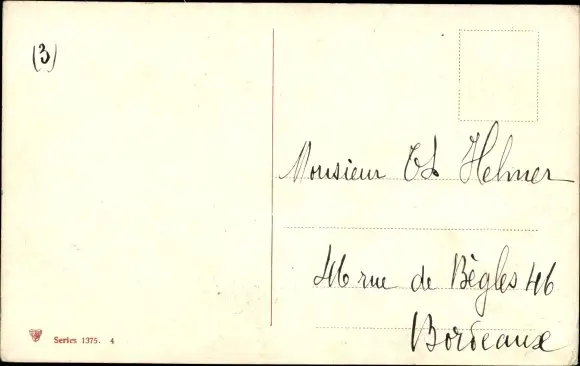 (3)
Monsieur Ch Helmer
46 rue de Bègles 46
Bordeaux
Series 1375. 4